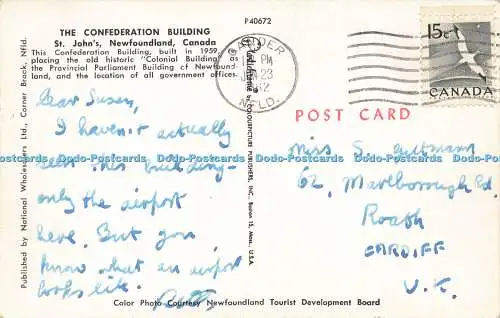 P40672
THE CONFEDERATION BUILDING
St. John's, Newfoundland, Canada
This Confederation Building, built in 1959,
placing the old historic "Colonial Building" as
the Provincial Parliament Building of Newfound-
land, and the location of all government offices.
Dear Susan,
I haven't actually
seen this building -
only the airport
here. But you
know what an airport
looks like.
Published by National Wholesalers Ltd., Corner Brook, Nfld.
COLOURPICTURE PUBLISHERS, INC., Boston 15, Mass., U.S.A.
GANDER
PM
23
NFLD.
15c
CANADA
POST CARD
Miss S.
62, Marlborough Rd.
Roath
CARDIFF
U.K.
Postcards-Postcards.com
Color Photo Courtesy Newfoundland Tourist Development Board